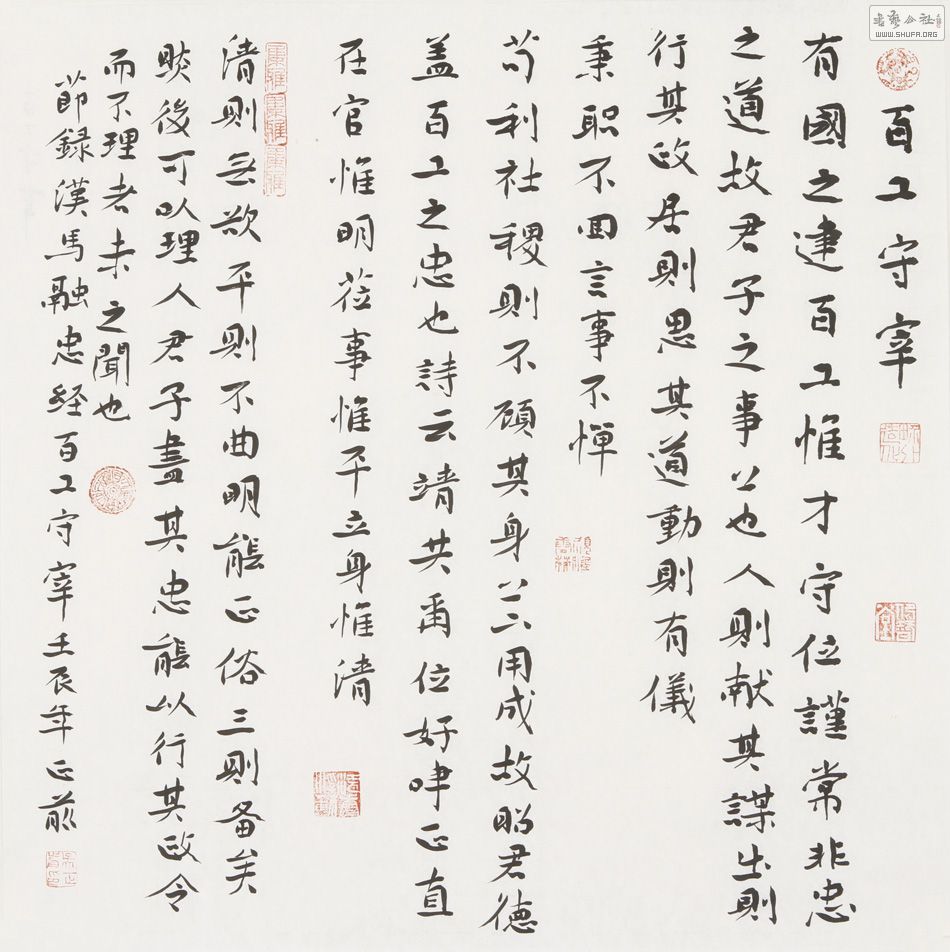 書藝公社
WWW.SHUFA.ORG
百工守宰
有國之建百工惟才守位謹常非忠
之道故君子之事上也入則献其謀出則
行其政居則思其道動則有儀
秉职不回言事不憚
苟利社稷則不顧其身上下用成故昭君德
盖百工之忠也詩云靖共尔位好正直
在官惟明莅事惟平立身惟清
清則无欲平則不曲明能正俗三則备矣
然後可以理人君子盡其忠能以行其政令
而不理者未之聞也
節録漢馬融忠经百工守宰壬辰年正前